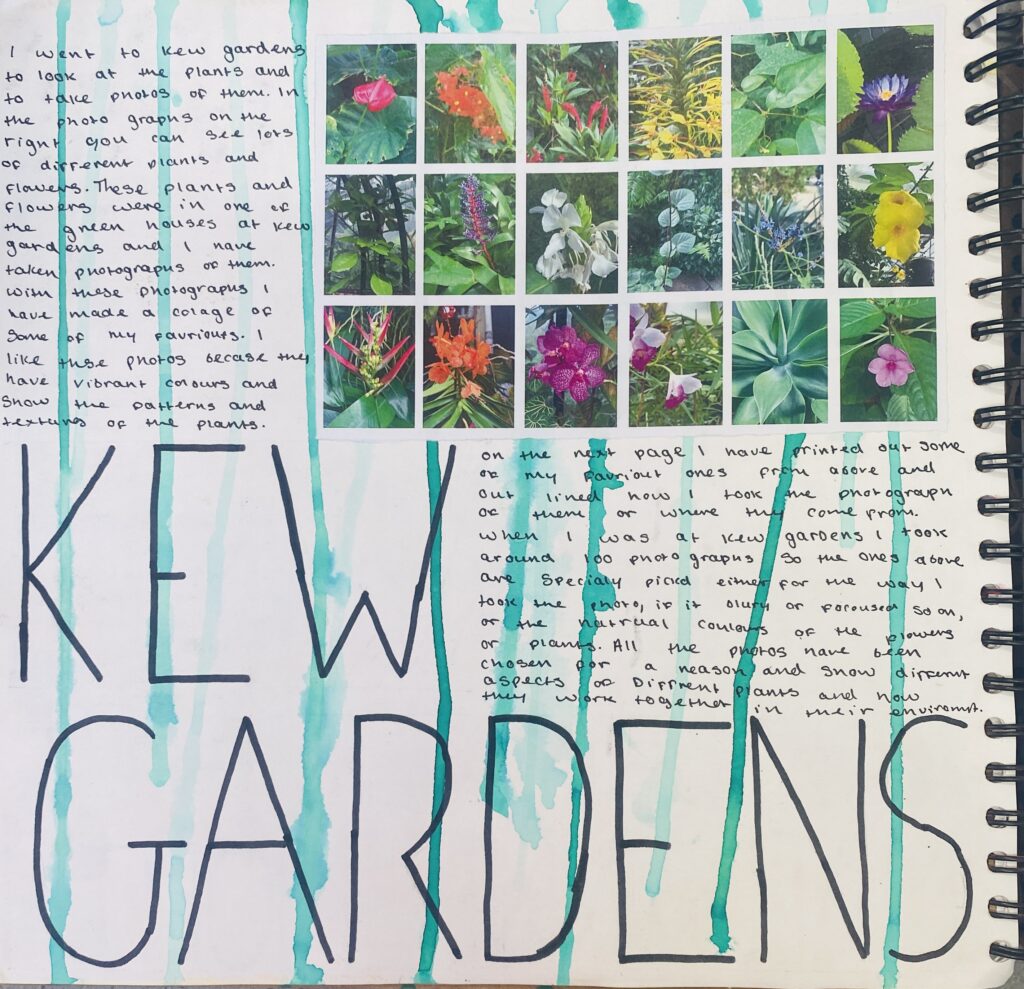 I went to kew gardens
to look at the plants and
to take photos of them. In
the photo graphs on the
right you can see lots
of different plants and
flowers. These plants and
flowers were in one of
the green houses at kew
gardens and I have
taken photographs of them.
With these photographs I
have made a colage of
some of my favriouts. I
like these photos becase they
have vibrant colours and
show the patterns and
textures of the plants.
on the next page I have printed out some
of my favriout ones from above and
out lined how I took the photograph
of them or where they come from.
When I was at kew gardens I took
around 100 photographs so the ones above
are specialy picked either for the way I
took the photo, if it blury or forcused so on,
or the natrual coulours of the flowers
or plants. All the photos have been
chosen for a reason and show different
aspects of Diffrent plants and how
they work together in their enviromt.
KEW
GARDENS